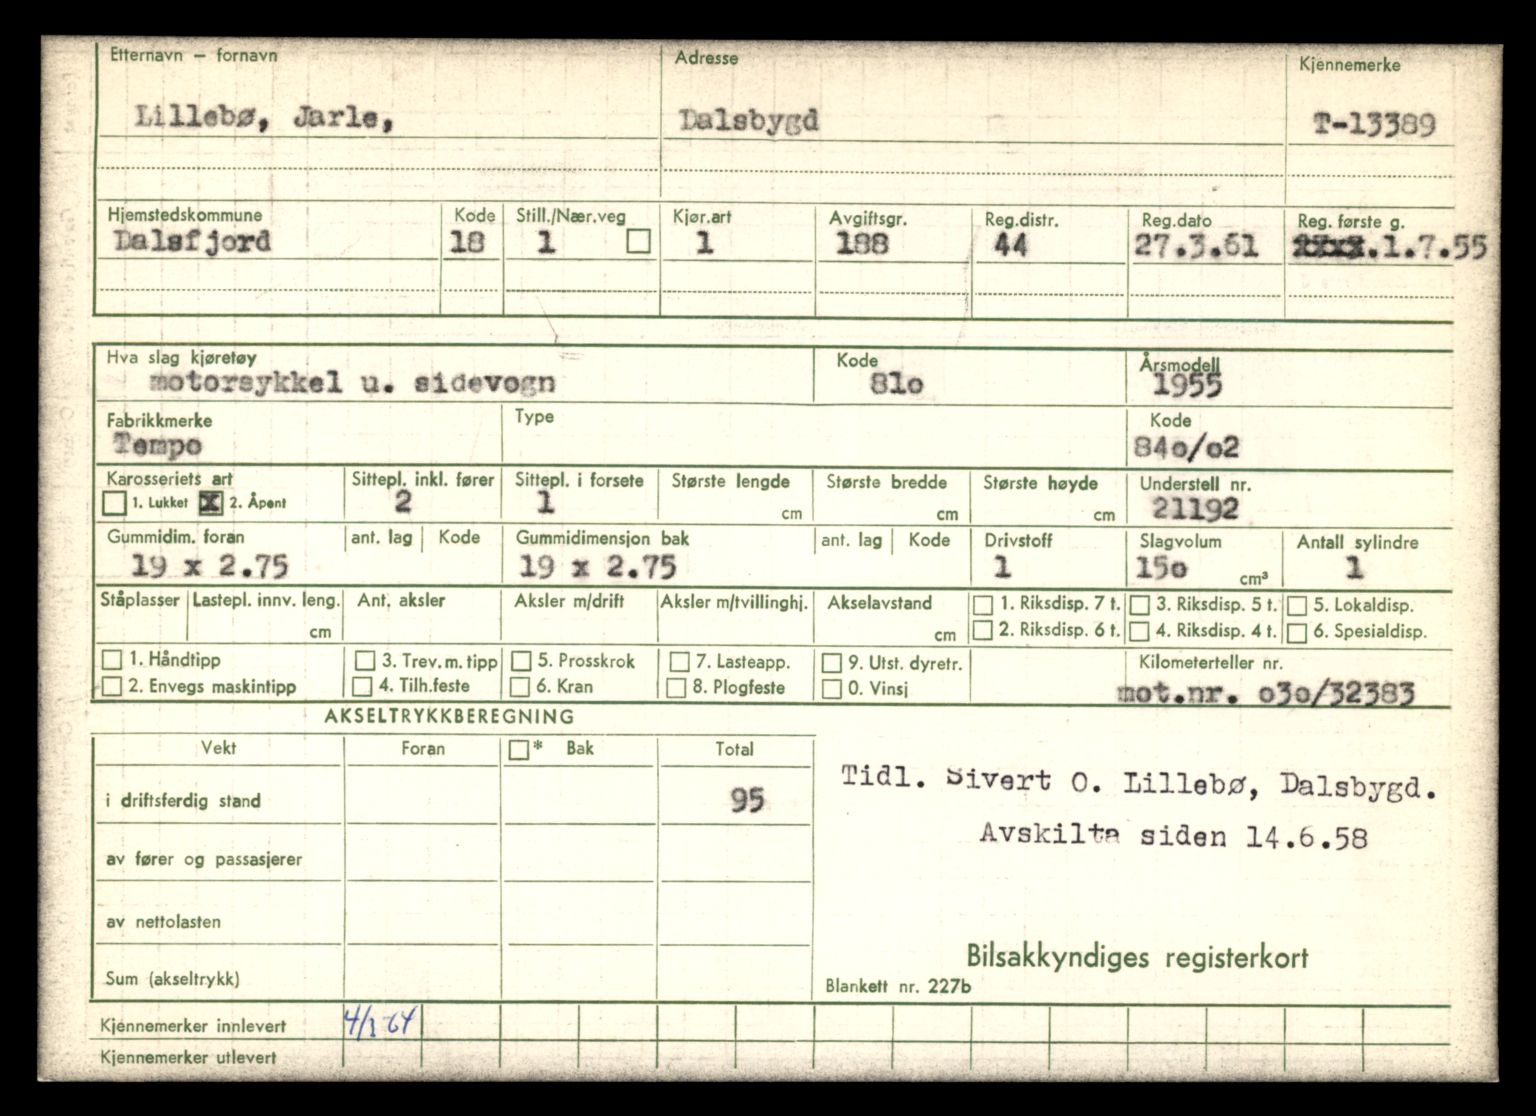 Etternavn – fornavn Adresse Kjennemerke
Lillebø, Jarle, Dalsbygd T-13389
Hjemstedskommune Kode Still./Nær.veg Kjør.art Avgiftsgr. Reg.distr. Reg.dato Reg. første g.
Dalsfjord 18 1 1 188 44 27.3.61 .1.7.55
Hva slag kjøretøy Kode Årsmodell
motorsykkel u. sidevogn 81o 1955
Fabrikkmerke Type Kode
Tempo 84o/o2
Karosseriets art Sittepl. inkl. fører Sittepl. i forsete Største lengde Største bredde Største høyde Understell nr.
1. Lukket x 2. Åpent 2 1 cm cm cm 21192
Gummidim. foran ant. lag Kode Gummidimensjon bak ant. lag Kode Drivstoff Slagvolum Antall sylindre
19 x 2.75 19 x 2.75 1 15o cm³ 1
Ståplasser Lastepl. innv. leng. Ant. aksler Aksler m/drift Aksler m/tvillinghj. Akselavstand 1. Riksdisp. 7 t. 3. Riksdisp. 5 t. 5. Lokaldisp.
cm cm 2. Riksdisp. 6 t. 4. Riksdisp. 4 t. 6. Spesialdisp.
1. Håndtipp 3. Trev. m. tipp 5. Prosskrok 7. Lasteapp. 9. Utst. dyretr. Kilometerteller nr.
2. Envegs maskintipp 4. Tilh.feste 6. Kran 8. Plogfeste 0. Vinsj mot.nr. o3o/32383
AKSELTRYKKBEREGNING
Vekt Foran * Bak Total
i driftsferdig stand 95
av fører og passasjerer
av nettolasten
Sum (akseltrykk)
Tidl. Sivert O. Lillebø, Dalsbygd.
Avskilta siden 14.6.58
Bilsakkyndiges registerkort
Blankett nr. 227b
Kjennemerker innlevert 4/1-64
Kjennemerker utlevert